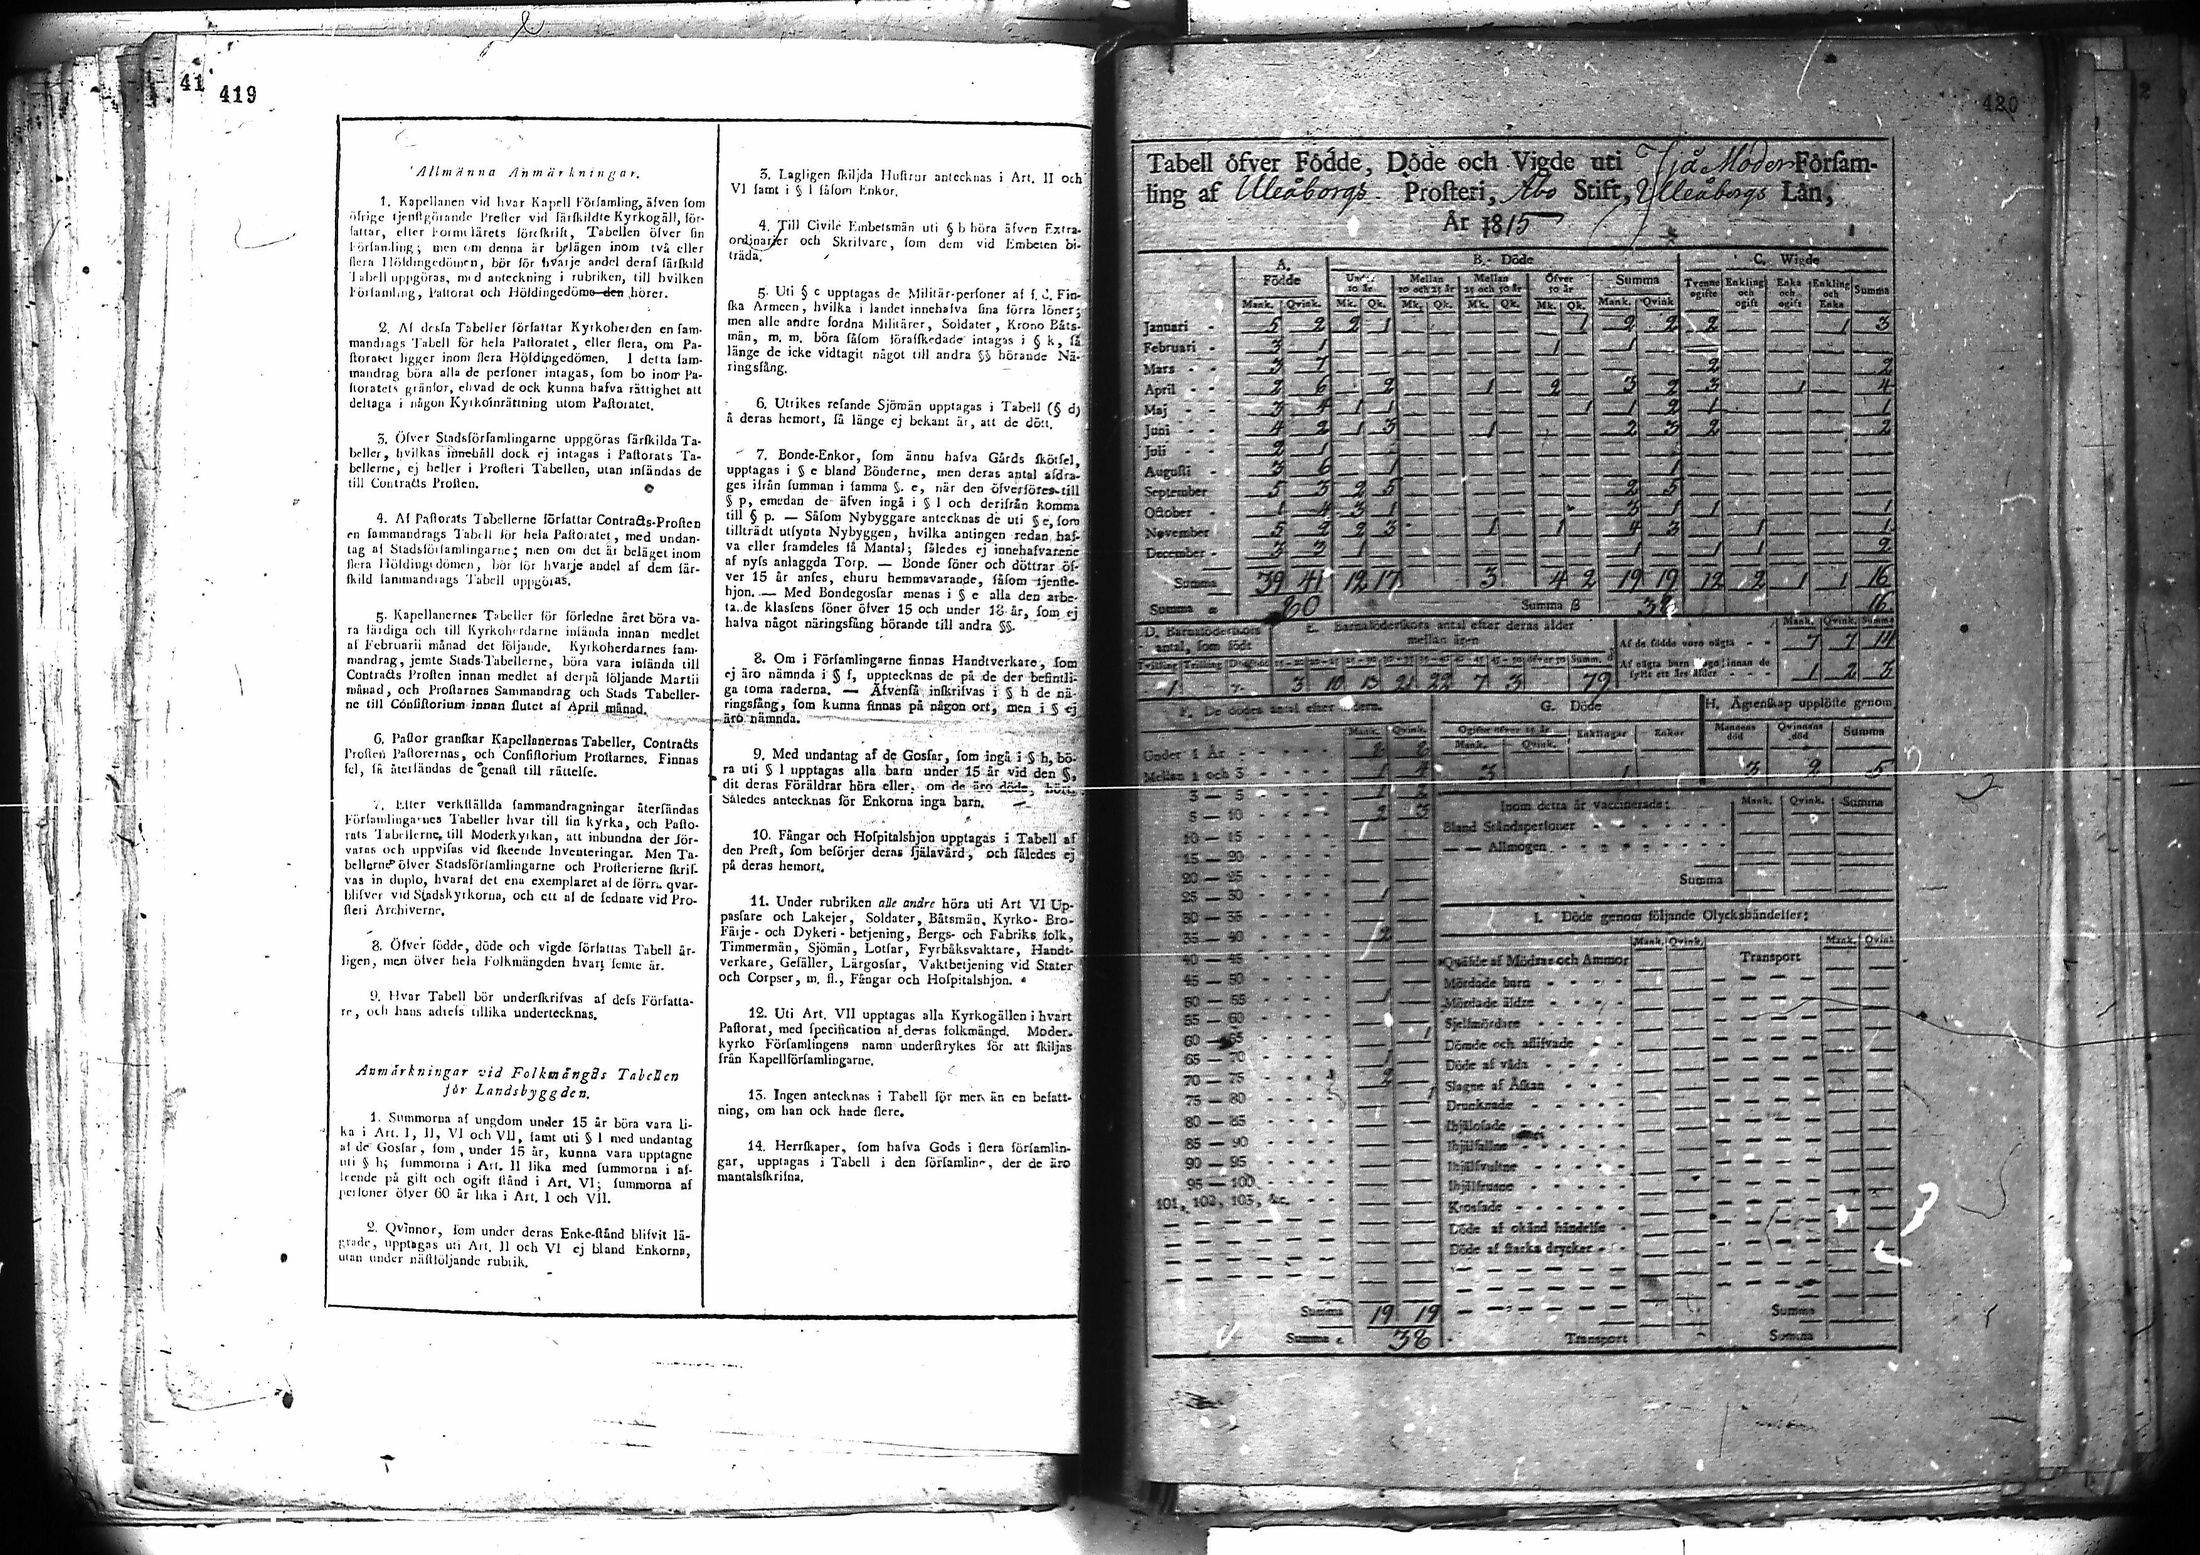 41
419
Allmänna Anmärkningar.
1. Kapellanen vid hvar Kapell Församling, äfven som
öfrige tjenstgörande Prester vid särskildte Kyrkogäll, för-
fattar, efter Formulärets föreskrift, Tabellen öfver sin
Församling; men om denna är belägen inom två eller
flera Höfdingedömen, bör för hvarje andel deraf särskild
Tabell uppgöras, med anteckning i rubriken, till hvilken
Församling, Pastorat och Höfdingedöme den hörer.
2. Af dessa Tabeller författar Kyrkoherden en sam-
mandrags Tabell för hela Pastoratet, eller flera, om Pa-
storatet ligger inom flera Höfdingedömen. I detta sam-
mandrag böra alla de personer intagas, som bo inom Pa-
storatets gränsor, ehvad de ock kunna hafva rättighet att
deltaga i någon Kyrkoinrättning utom Pastoratet.
3. Öfver Stadsförsamlingarne uppgöras särskilda Ta-
beller, hvilkas innehåll dock ej intagas i Pastorats Ta-
bellerne, ej heller i Prosteri Tabellen, utan insändas de
till Contracts Prosten.
4. Af Pastorats Tabellerne författar Contracts-Prosten
en sammandrags Tabell för hela Pastoratet, med undan-
tag af Stadsförsamlingarne; men om det är beläget inom
flera Höfdingedömen, bör för hvarje andel af dem sär-
skild sammandrags Tabell uppgöras.
5. Kapellanernes Tabeller för förledne året böra va-
ra färdiga och till Kyrkoherdarne insända innan medlet
af Februarii månad det följande. Kyrkoherdarnes sam-
mandrag, jemte Stads-Tabellerne, böra vara insända till
Contracts Prosten innan medlet af derpå följande Martii
månad, och Prostarnes Sammandrag och Stads Tabeller-
ne till Consistorium innan slutet af April månad.
6. Pastor granskar Kapellanernas Tabeller, Contracts
Prosten Pastorernas, och Consistorium Prostarnes. Finnas
fel, så återsändas de genast till rättelse.
7. Efter verkställda sammandragningar återsändas
Församlingarnes Tabeller hvar till sin kyrka, och Pasto-
rats Tabellerne, till Moderkyrkan, att inbundna der för-
varas och uppvisas vid skeende Inventeringar. Men Ta-
bellerne öfver Stadsförsamlingarne och Prosterierne skrif-
vas in duplo, hvaraf det ena exemplaret af de förra qvar-
blifver vid Stadskyrkorna, och ett af de sednare vid Pro-
steri Archiverne.
8. Öfver födde, döde och vigde författas Tabell år-
ligen, men öfver hela Folkmängden hvart femte år.
9. Hvar Tabell bör underskrifvas af dess Författa-
re, och hans adress tillika undertecknas.
Anmärkningar vid Folkmängds Tabellen
för Landsbyggden.
1. Summorna af ungdom under 15 år böra vara li-
ka i Art. I, II, VI och VII, samt uti § l med undantag
af de Gossar, som, under 15 år, kunna vara upptagne
uti § h; summorna i Art. II lika med summorna i af-
seende på gift och ogift stånd i Art. VI; summorna af
personer öfver 60 år lika i Art. I och VII.
2. Qvinnor, som under deras Enke-stånd blifvit lä-
grade, upptagas uti Art. II och VI ej bland Enkorna,
utan under nästföljande rubrik.
3. Lagligen skiljda Hustrur antecknas i Art. II och
VI samt i § l såsom Enkor.
4. Till Civile Embetsmän uti § b höra äfven Extra-
ordinarier och Skrifvare, som dem vid Embeten bi-
träda.
5. Uti § c upptagas de Militär-personer af f. d. Fin-
ska Armeen, hvilka i landet innehafva sina förra löner;
men alle andre fordna Militärer, Soldater, Krono Båts-
män, m. m. böra såsom förafskedade intagas i § k, så
länge de icke vidtagit något till andra §§ hörande Nä-
ringsfång.
6. Utrikes resande Sjömän upptagas i Tabell (§ d)
å deras hemort, så länge ej bekant är, att de dött.
7. Bonde-Enkor, som ännu hafva Gårds skötsel,
upptagas i § e bland Bönderne, men deras antal afdra-
ges ifrån summan i samma §. e, när den öfverföres till
§ p, emedan de äfven ingå i § l och derifrån komma
till § p. — Såsom Nybyggare antecknas de uti § e, som
tillträdt utsynta Nybyggen, hvilka antingen redan haf-
va eller framdeles få Mantal; således ej innehafvarene
af nyss anlaggda Torp. — Bonde söner och döttrar öf-
ver 15 år anses, ehuru hemmavarande, såsom tjenste-
hjon. — Med Bondegossar menas i § e alla den arbe-
ta..de klassens söner öfver 15 och under 18 år, som ej
hafva något näringsfång hörande till andra §§.
8. Om i Församlingarne finnas Handtverkare, som
ej äro nämnda i § f, upptecknas de på de der befintli-
ga toma raderna. — Äfvenså inskrifvas i § h de nä-
ringsfång, som kunna finnas på någon ort, men i § ej
äro nämnda.
9. Med undantag af de Gossar, som ingå i § h, bö-
ra uti § l upptagas alla barn under 15 år vid den §,
dit deras Föräldrar höra eller, om de äro döde, hört.
Således antecknas för Enkorna inga barn.
10. Fångar och Hospitalshjon upptagas i Tabell af
den Prest, som besörjer deras själavård, och således ej
på deras hemort.
11. Under rubriken alle andre höra uti Art VI Up-
passare och Lakejer, Soldater, Båtsmän, Kyrko- Bro-
Färje- och Dykeri-betjening, Bergs- och Fabriks folk,
Timmermän, Sjömän, Lotsar, Fyrbåksvaktare, Handt-
verkare, Gesäller, Lärgossar, Vaktbetjening vid Stater
och Corpser, m. fl., Fångar och Hospitalshjon.
12. Uti Art. VII upptagas alla Kyrkogällen i hvart
Pastorat, med specification af deras folkmängd. Moder-
kyrko Församlingens namn understrykes för att skiljas
från Kapellförsamlingarne.
13. Ingen antecknas i Tabell för mer än en befatt-
ning, om han ock hade flere.
14. Herrskaper, som hafva Gods i flera församlin-
gar, upptagas i Tabell i den församling, der de äro
mantalsskrifna.
420
Tabell öfver Födde, Döde och Vigde uti Ijå Moder Församling
ling af Uleåborgs Prosteri, Åbo Stift, Uleåborgs Län,
År 1815
A. Födde B. Döde C. Wigde
Under 10 år Mellan 10 och 25 år Mellan 25 och 50 år Öfver 50 år Summa Tvenne ogifte Enkling och ogift Enka och ogift Enkling och Enka Summa
Mank. Qvink. Mk. Qk. Mk. Qk. Mk. Qk. Mk. Qk. Mank. Qvink
Januari 5 2 2 1 — — — — — 1 2 2 2 — — 1 3
Februari
Mars 3 7 2 2
April 2 6 — 2 — — — 1 2 — 3 2 3 — 1 — 4
Maj 3 4 1 1 — — — — — 1 1 2 1 — — — 1
Juni 4 2 1 3 — — — 1 — — 2 3 2 — — — 2
Juli
Augusti 3 6
September 5 3 2 5 2 5
October 1 4 3 1 3 1 1 1
November 5 2 2 3 — — — 1 1 — 4 3 — 1 — — 1
December 3 3 1 1 1 1 2
Summa 39 41 12 17 3 4 2 19 19 12 2 1 1 16
Summa 80 Summa B 38 16
D. Barnaföderskors antal, som födt
E. Barnaföderskors antal efter deras ålder mellan åren
Mank. Qvink. Summa
Af de födde voro oägta 7 7 14
Af oägta barn dogo innan de fyllt ett års ålder 1 2 3
Tvilling Trilling
1 3 10 13 21 22 7 3 79
F. De dödes antal efter åldern.
G. Döde
H. Ägtenskap upplöste genom
Mank. Qvink. Ogifte öfver 15 år Enklingar Enkor Mannens död Qvinnans död Summa
Under 1 År 8 8 Mank. Qvink.
Mellan 1 och 3 1 4 3 1 3 2 5
3 — 5 1 2
5 — 10 2 3
10 — 15
15 — 20
20 — 25
25 — 30 1
30 — 35
35 — 40 2
40 — 45
45 — 50
50 — 55 1
55 — 60
60 — 65 1
65 — 70 1
70 — 75 2
75 — 80 1
80 — 85
85 — 90
90 — 95
95 — 100
101, 102, 103, &c.
Summa 19 19
Summa 38
Inom detta år vaccinerade: Mank. Qvink. Summa
Bland Ståndspersoner
— — Allmogen
Summa
I. Döde genom följande Olyckshändelser:
Mank. Qvink. Mank. Qvink
Qväfde af Mödrar och Ammor Transport
Mördade barn
Mördade äldre
Sjelfmördare
Dömde och aflifvade
Döde af våda
Slagne af Åskan
Drunknade
Ihjälosade
Ihjälfallne
Ihjälsvultne
Ihjälfrusne
Krossade
Döde af okänd händelse
Döde af starka drycker
Summa
Transport Summa